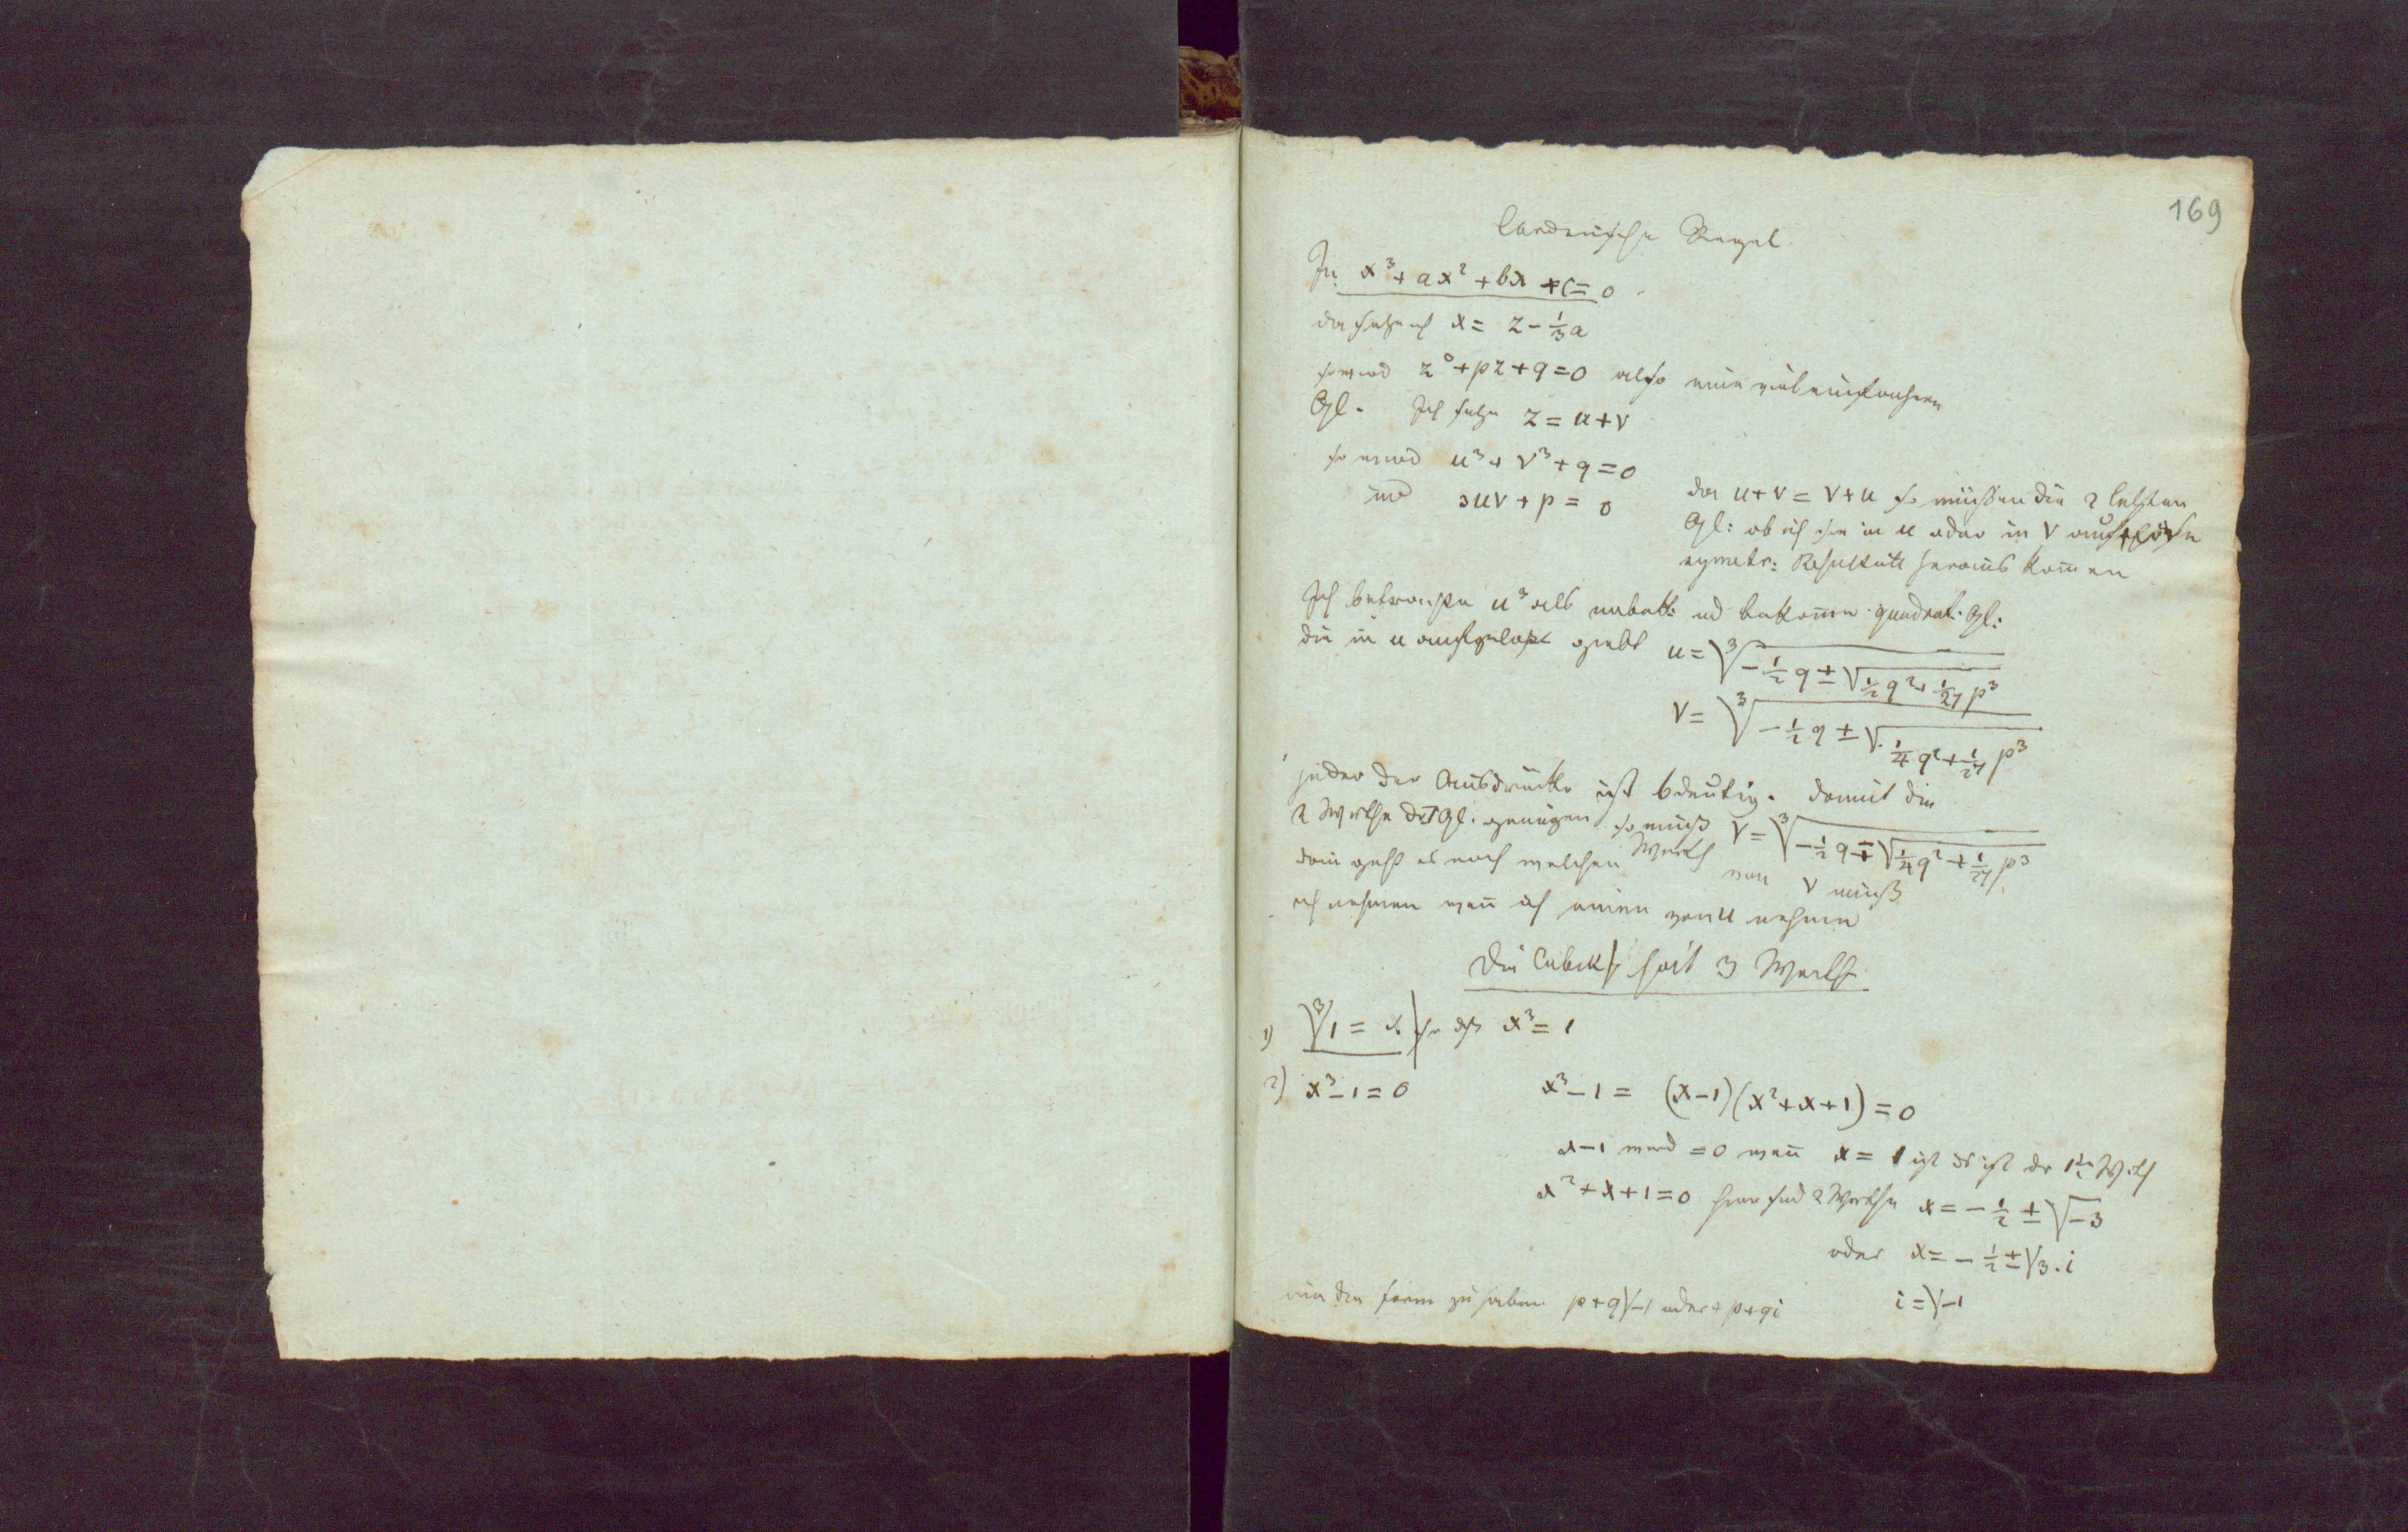 169
Cardanische Regel
In x³ + ax² + bx + c = 0
da setze ich x = z - ⅓a
so wird z³ + pz + q = 0 also eine viel einfachere
Gl. Ich setze z = u + v
so wird u³ + v³ + q = 0
und 3uv + p = 0
da u + v = v + u so müssen die 2 letzten
Gl: ob ich sie in u oder in v auflöse
symetr: Resultate heraus komen
Ich betrachte u³ als unbek: und bekome quadrat. Gl:
die in u aufgelöst giebt u = ∛(-½q ± √(½q² + 1/27 p³))
v = ∛(-½q ± √(¼q² + 1/27 p³))
jeder der Ausdrücke ist 6deutig. damit die
2 Werthe der Gl. genügen so muß v = ∛(-½q ∓ √(¼q² + 1/27 p³))
dan geht es noch welchen Werth von v muß
ich nehmen wen ich einen von u nehme
Die Cubik√ hat 3 Werthe
1) ∛1 = x so ist x³ = 1
2) x³ - 1 = 0 x³ - 1 = (x-1)(x² + x + 1) = 0
x - 1 wird = 0 wen x = 1 ist das ist der 1te Werth
x² + x + 1 = 0 hier sind 2 Werthe x = -½ ± √-3
oder x = -½ ± √3 . i
um die Form zu haben p + q√-1 oder + p + qi i = √-1